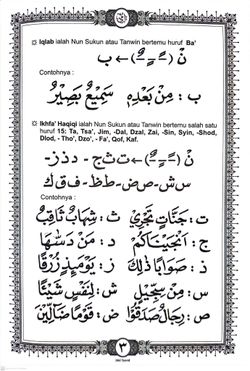 Iqlab ialah Nun Sukun atau Tanwin bertemu huruf Ba'
نْ (ـًـ ـٍـ ـٌـ) ← ب
Contohnya :
ب : مِنْ بَعْدِهِ سَمِيْعٌ بَصِيْرٌ
Ikhfa' Haqiqi ialah Nun Sukun atau Tanwin bertemu salah satu
huruf 15: Ta, Tsa', Jim, -Dal, Dzal, Zai, -Sin, Syin, -Shod,
Dlod, - Tho', Dzo', - Fa', Qof, Kaf.
نْ (ـًـ ـٍـ ـٌـ) ← ت ث ج - د ذ ز -
س ش - ص ض - ط ظ - ف ق ك
Contohnya :
ت : جَنَّاتٍ تَجْرِيْ ث : شِهَابٌ ثَاقِبٌ
ج : اَنْجَيْنَاكُمْ د : مَنْ دَسّٰهَا
ذ : صَوَابًا ذٰلِكَ ز : يَوْمَئِذٍ زُرْقًا
س : مِنْ سِجِّيْلٍ ش : لِنَفْسٍ شَيْئًا
ص : رِجَالٌ صَدَقُوْا ض : قَوْمًا ضَالِّيْنَ
٣